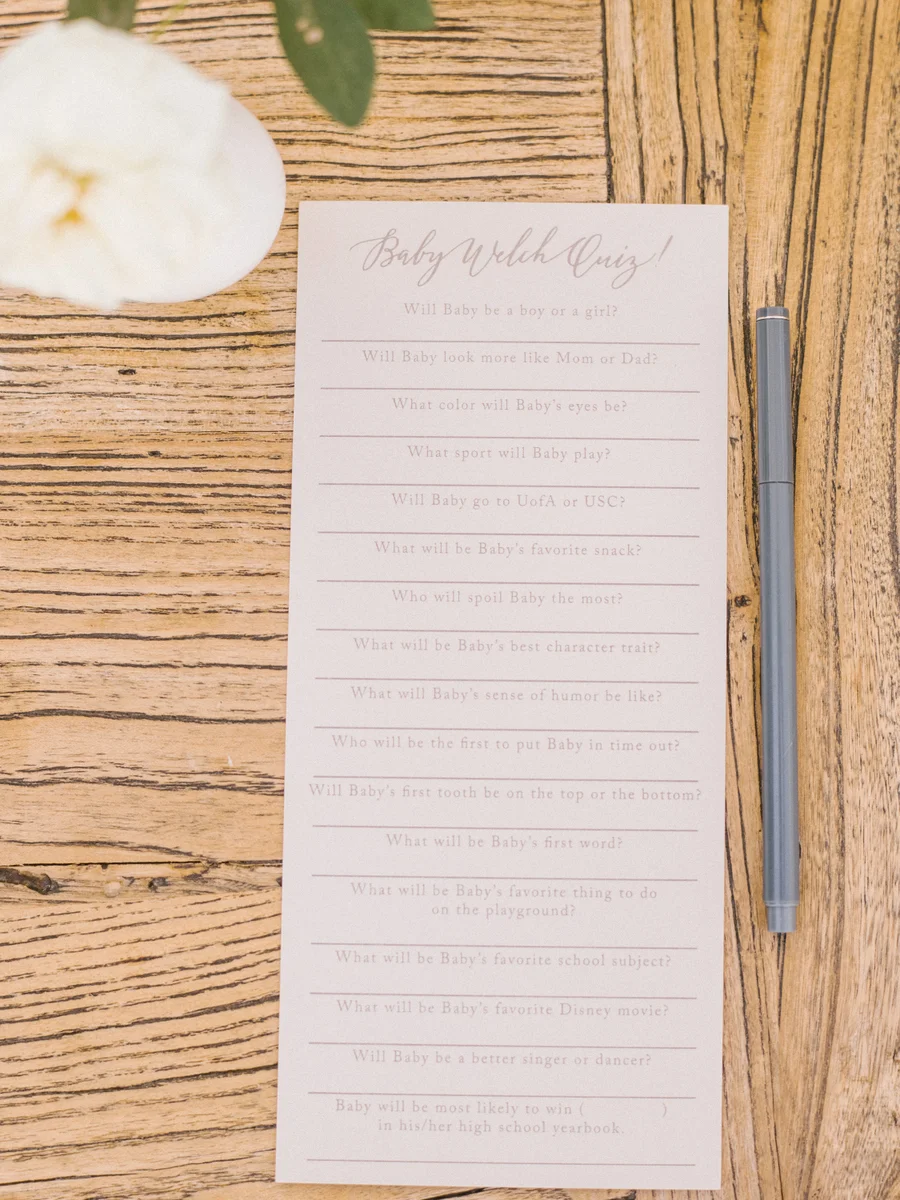 Baby Welch Quiz!
Will Baby be a boy or a girl?
Will Baby look more like Mom or Dad?
What color will Baby's eyes be?
What sport will Baby play?
Will Baby go to UofA or USC?
What will be Baby's favorite snack?
Who will spoil Baby the most?
What will be Baby's best character trait?
What will Baby's sense of humor be like?
Who will be the first to put Baby in time out?
Will Baby's first tooth be on the top or the bottom?
What will be Baby's first word?
What will be Baby's favorite thing to do
on the playground?
What will be Baby's favorite school subject?
What will be Baby's favorite Disney movie?
Will Baby be a better singer or dancer?
Baby will be most likely to win (          )
in his/her high school yearbook.